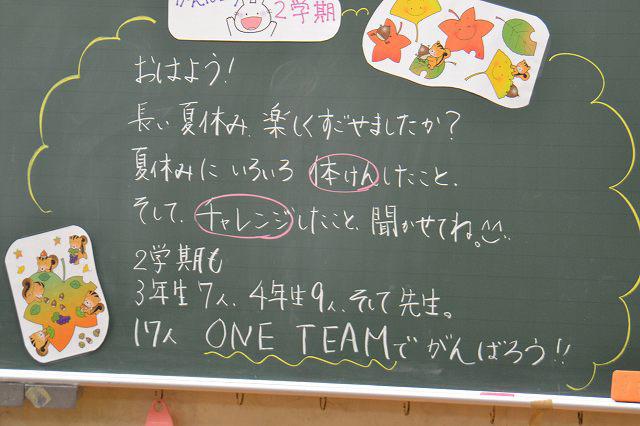 2学期
おはよう!
長い夏休み、楽しくすごせましたか?
夏休みにいろいろ体けんしたこと、
そして、チャレンジしたこと、聞かせてね。
2学期も
3年生7人、4年生9人、そして先生。
17人 ONE TEAMでがんばろう!!